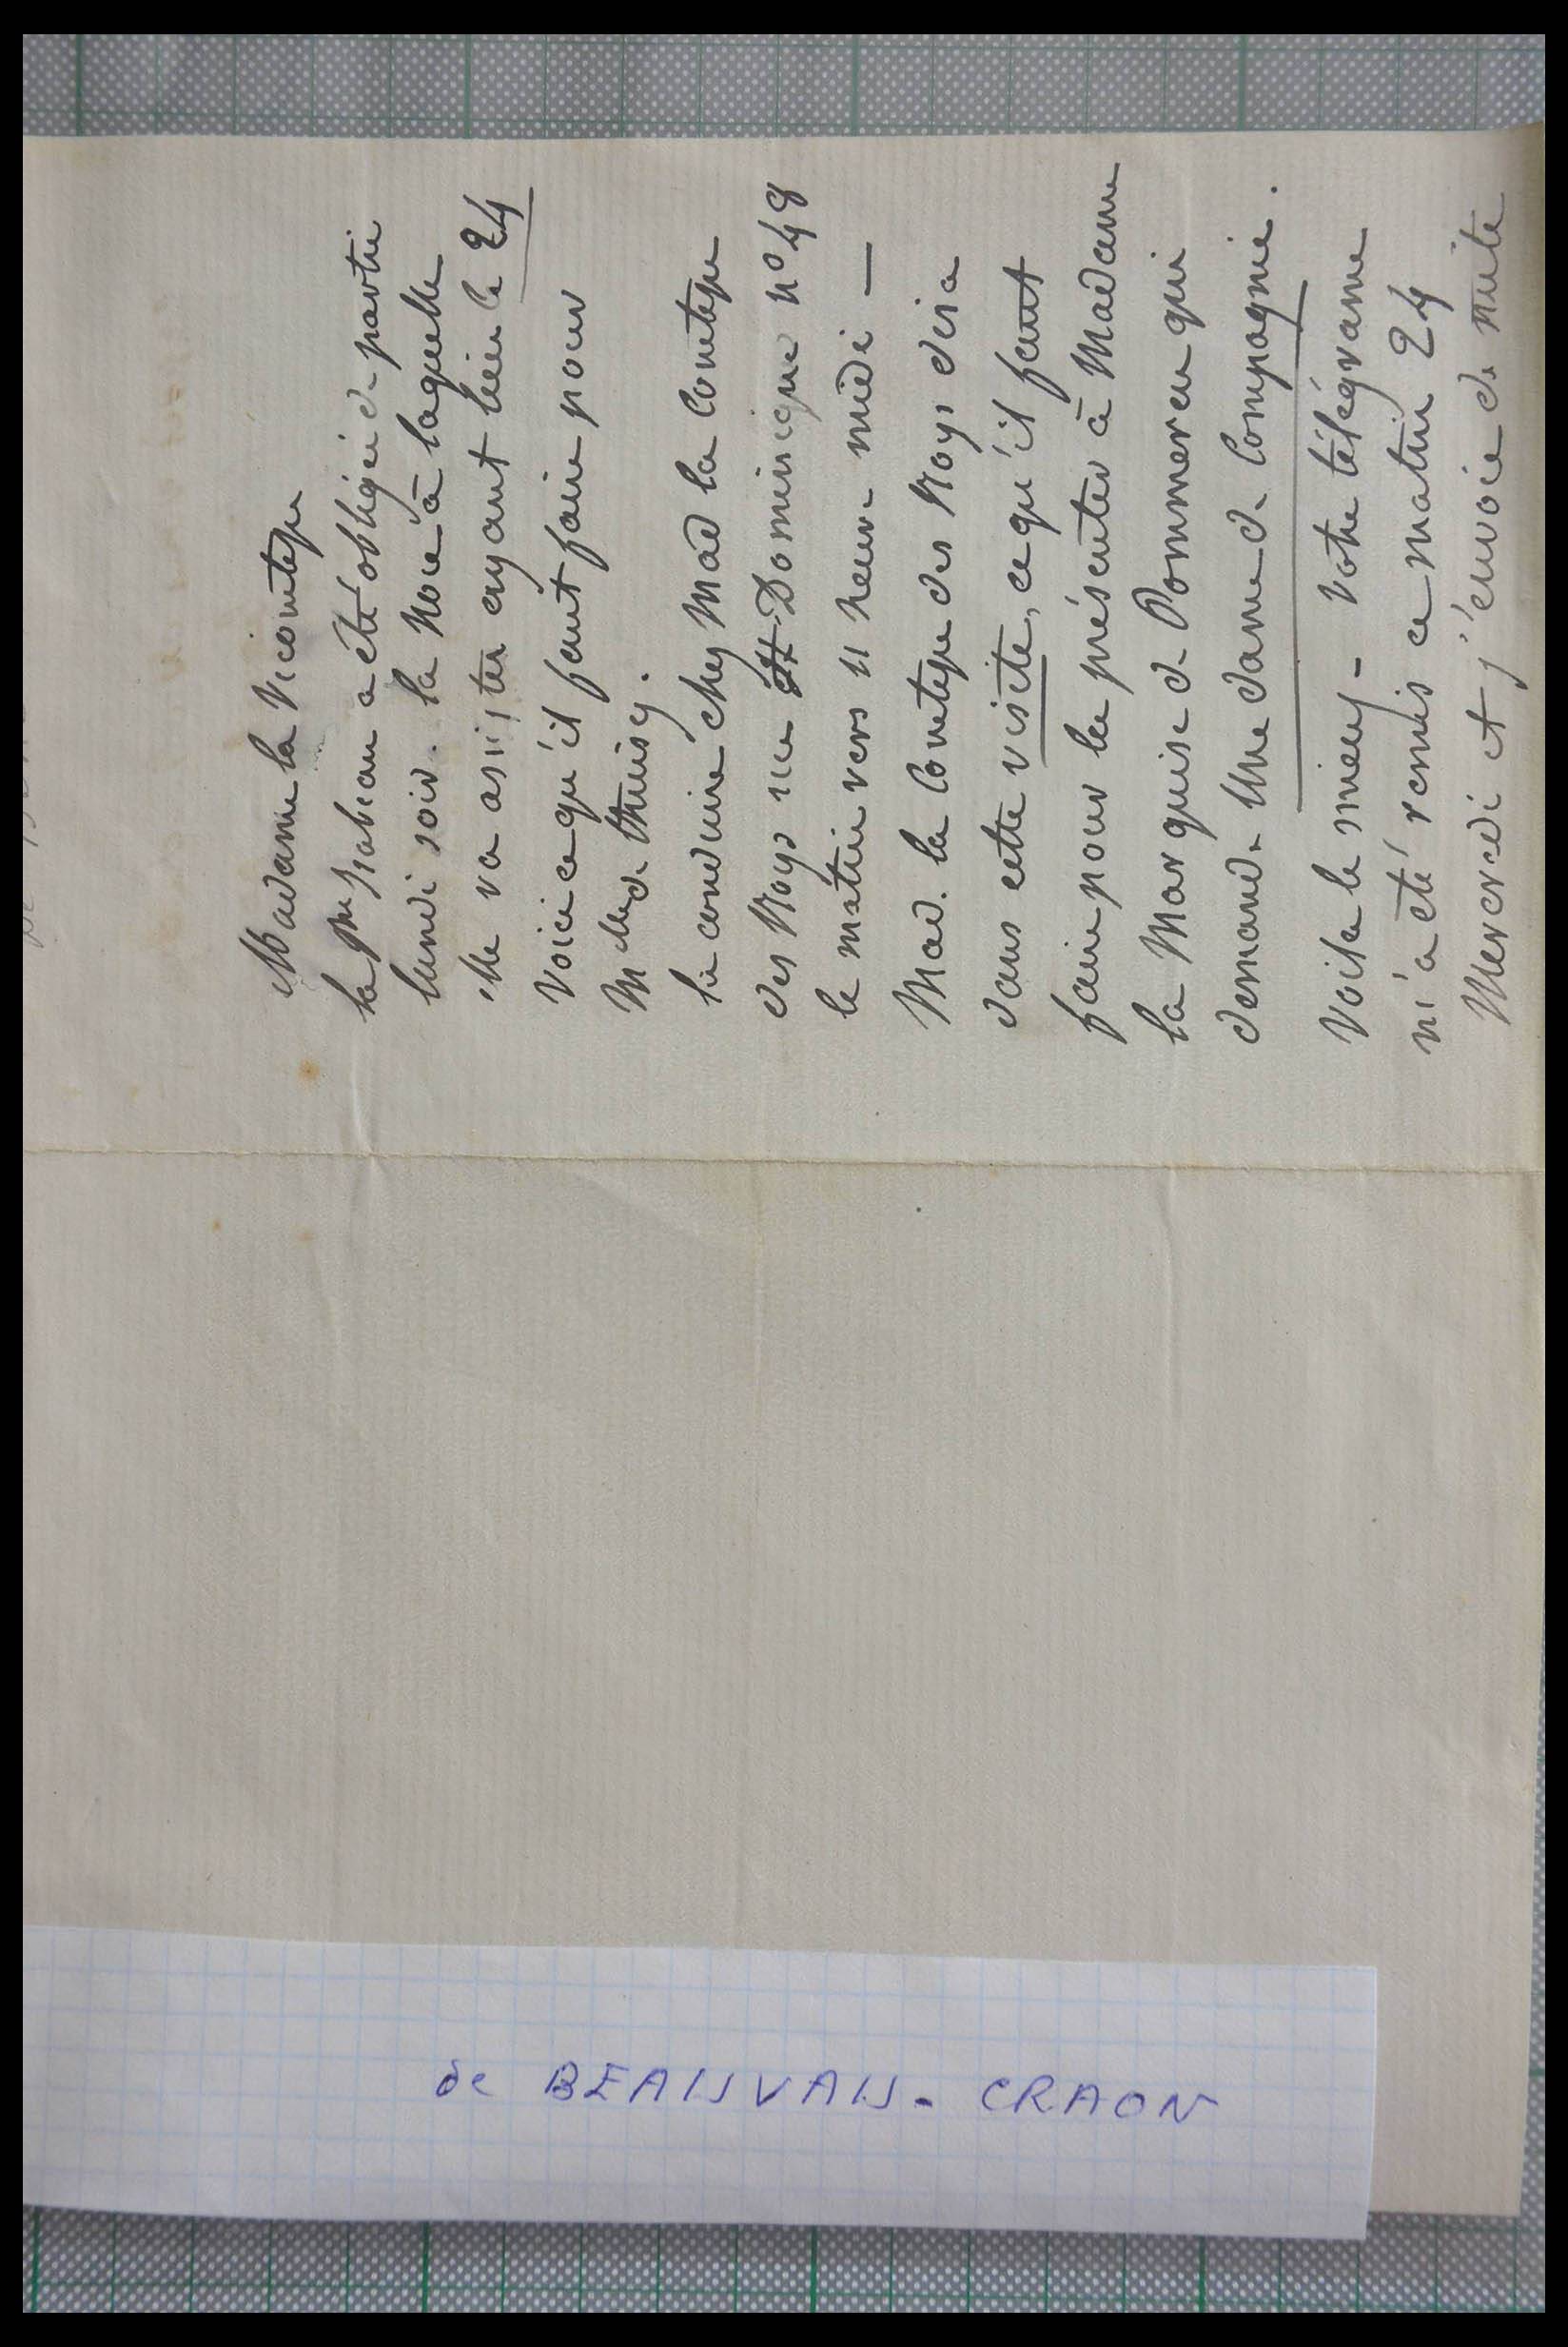 Madame la Vicomtesse
la Pse Isabeau a été obligée de partir
lundi soir. la Noce à laquelle
elle va assister ayant lieu le 24
Voici ce qu'il faut faire pour
Melle de Thuisy.
la conduire chez Mad la Comtesse
des Roys rue St Dominique no 48
le matin vers 11 heure midi —
Mad. la Comtesse des Roys dira
dans cette visite, ce qu'il faut
faire pour la présenter à Madame
la Marquise de Pommereu qui
demande Une dame de Compagnie.
Voila le mieux – Votre télégramme
m'a été remis ce matin 24
Mercredi et j'envoie de suite
de BEAUVAU. CRAON